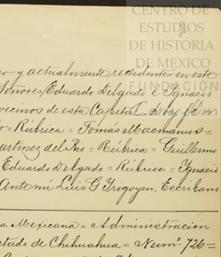 CENTRO DE
ESTUDIOS
DE HISTORIA
DE MEXICO
FUNDACIÓN
y actualmente residente en este
Señores Eduardo Delgado é Ignacio
vecinos de esta Capital. Doy fé
Rúbrica = Tomas Macmanus =
artinez del Rio = Rúbrica = Guillermo
Eduardo Delgado = Rúbrica = Ignacio
Ante mi Luis G Yrigoyen, Escribano
a Mexicana = Administracion
stado de Chihuahua = Num.º 726 =